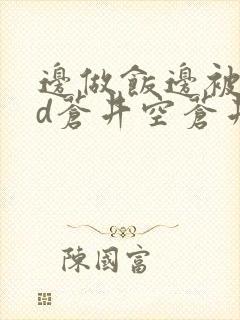 邊做飯邊被
d蒼井空蒼井
陳國富